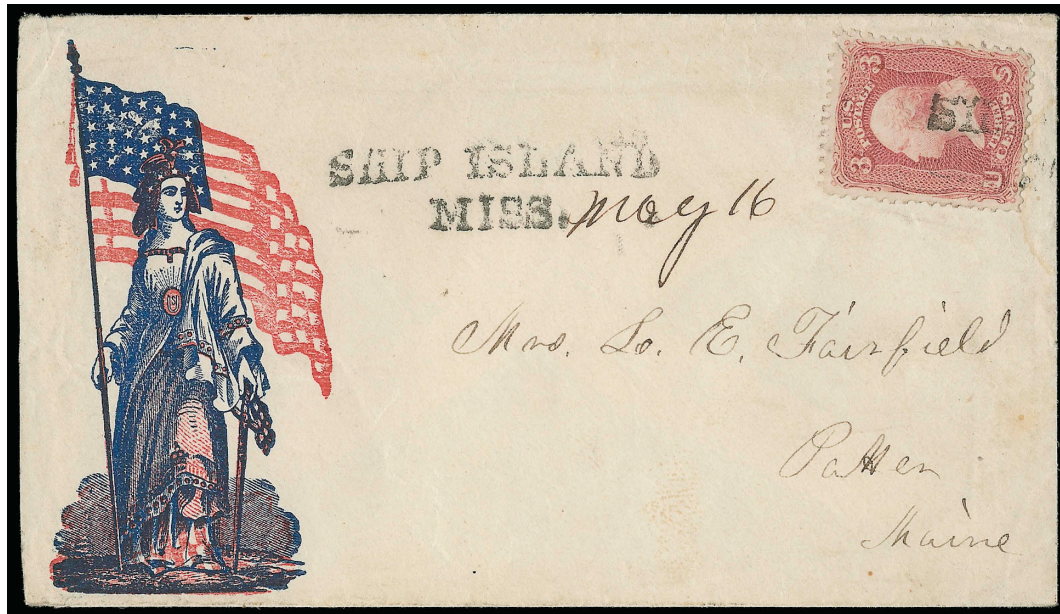 SHIP ISLAND
MISS. May 16
3 U.S. POSTAGE 3
S THREE CENTS U
Mrs. L. E. Fairfield
Patten
Maine